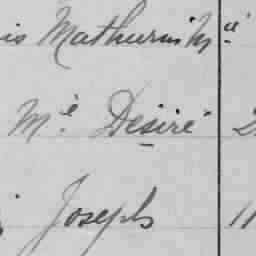 is Mathurin M.ie
M.ie Désiré 2
Joseph 11